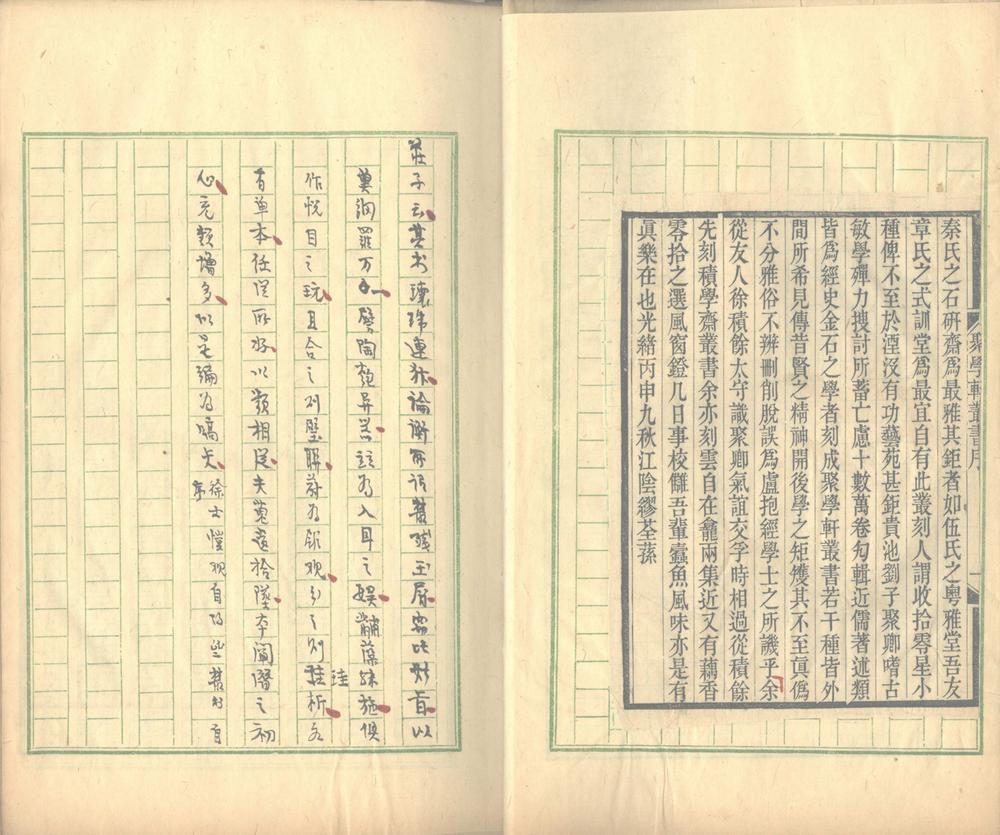 聚學軒叢書序
秦氏之石研齋爲最雅其鉅者如伍氏之粵雅堂吾友
章氏之式訓堂爲最宜自有此叢刻人謂收拾零星小
種俾不至於湮沒有功藝苑甚鉅貴池劉子聚卿嗜古
敏學殫力搜討所蓄亡慮十數萬卷勼輯近儒著述類
皆爲經史金石之學者刻成聚學軒叢書若干種皆外
間所希見傳昔賢之精神開後學之矩矱其不至眞僞
不分雅俗不辨刪削脫誤爲盧抱經學士之所譏乎余
從友人徐積餘太守識聚卿氣誼交孚時相過從積餘
先刻積學齋叢書余亦刻雲自在龕兩集近又有藕香
零拾之選風窗鐙几日事校讎吾輩蠹魚風味亦是有
眞樂在也光緒丙申九秋江陰繆荃蓀
莊子云其書瓌瑋連犿論衡所謂叢殘玉屑以
奠洞羅万譬陶匏异器並為入耳之娛黼藻俱
作悅目之玩且合之則聯為觀之則各
有單本任從所好以類相從夫蒐遺拾墜本闡潛之初
心充類增多以是編為嚆矢
徐士愷觀自得齋叢書自
序